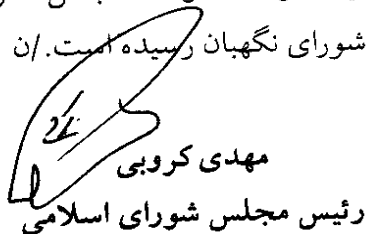 شورای نگهبان رسیده است./ن
مهدی کروبی
رئیس مجلس شورای اسلامی